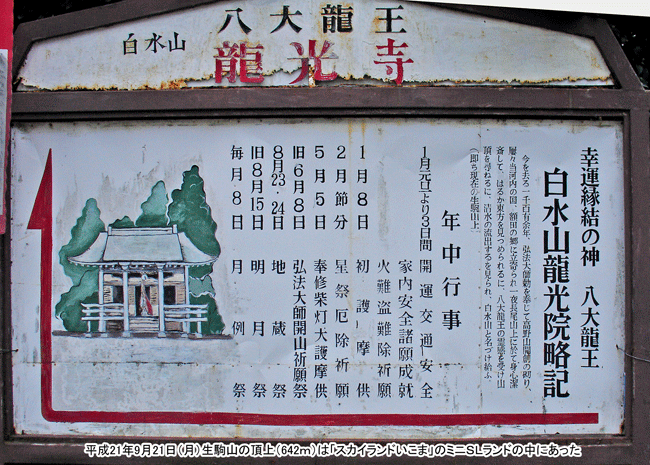 白水山
八大龍王
龍光寺
幸運縁結の神　八大龍王
白水山龍光院略記
今を去る一千百有余年、弘法大師勅を奉じて高野山開創の砌り、
屡々当河内の国、額田の郷に立寄られ一夜長尾山上に於て身心潔
斎して、はるか東方を見つめられるに、八大龍王の霊感を受け山
頂を尋ねるに、清水の流出するを見られ、白水山と名づけ給ふ
（即ち現在の生駒山上）
年中行事
1月元旦より3日間　開運交通安全
家内安全諸願成就
火難盗難除祈願
1月8日　初護摩供
2月節分　星祭厄除祈願
5月5日　奉修柴灯大護摩供
旧6月8日　弘法大師開山祈願祭
8月23・24日　地蔵祭
旧8月15日　明月祭
毎月8日　月例祭
平成21年9月21日（月）生駒山の頂上（642m）は「スカイランドいこま」のミニSLランドの中にあった